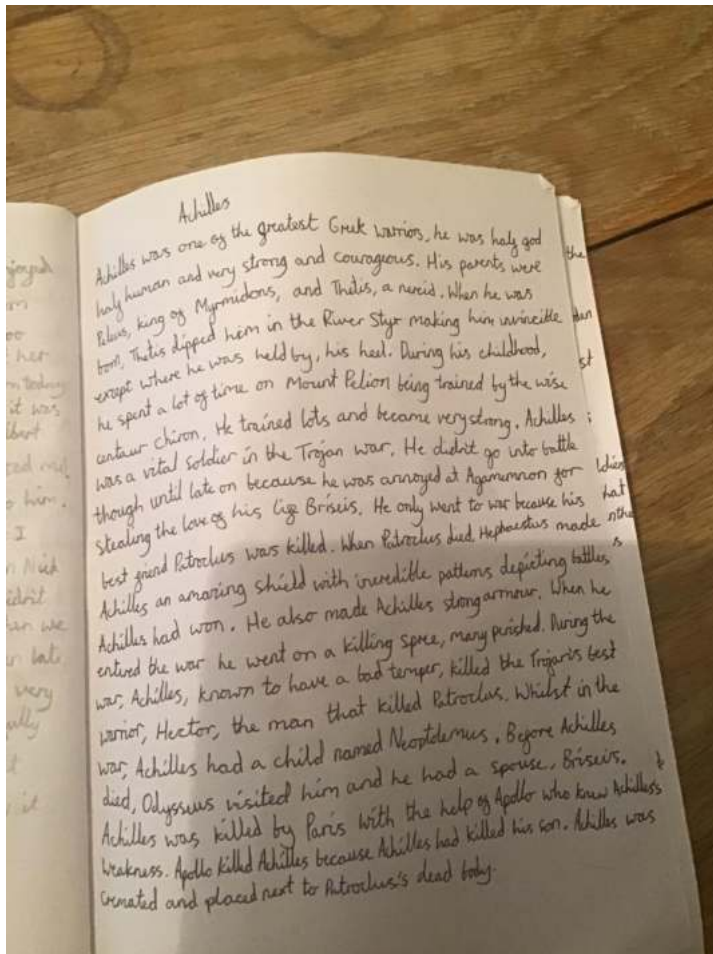 Achilles
Achilles was one of the greatest Greek warriors, he was half god
half human and very strong and courageous. His parents were
Peleus, king of Myrmidons, and Thetis, a nereid. When he was
born, Thetis dipped him in the River Styx making him invincible
except where he was held by, his heel. During his childhood,
he spent a lot of time on Mount Pelion being trained by the wise
centaur chiron. He trained lots and became very strong. Achilles
was a vital soldier in the Trojan war. He didn't go into battle
though until late on because he was annoyed at Agamemnon for
stealing the love of his life Briseis. He only went to war because his
best friend Patroclus was killed. When Patroclus died, Hephaestus made
Achilles an amazing shield with incredible patterns depicting battles
Achilles had won. He also made Achilles strong armour. When he
entered the war he went on a killing spree, many perished. During the
war, Achilles, known to have a bad temper, killed the Trojan's best
warrior, Hector, the man that killed Patroclus. Whilst in the
war, Achilles had a child named Neoptolemus. Before Achilles
died, Odysseus visited him and he had a spouse, Briseis.
Achilles was killed by Paris with the help of Apollo who knew Achilles's
weakness. Apollo killed Achilles because Achilles had killed his son. Achilles was
cremated and placed next to Patroclus's dead body.